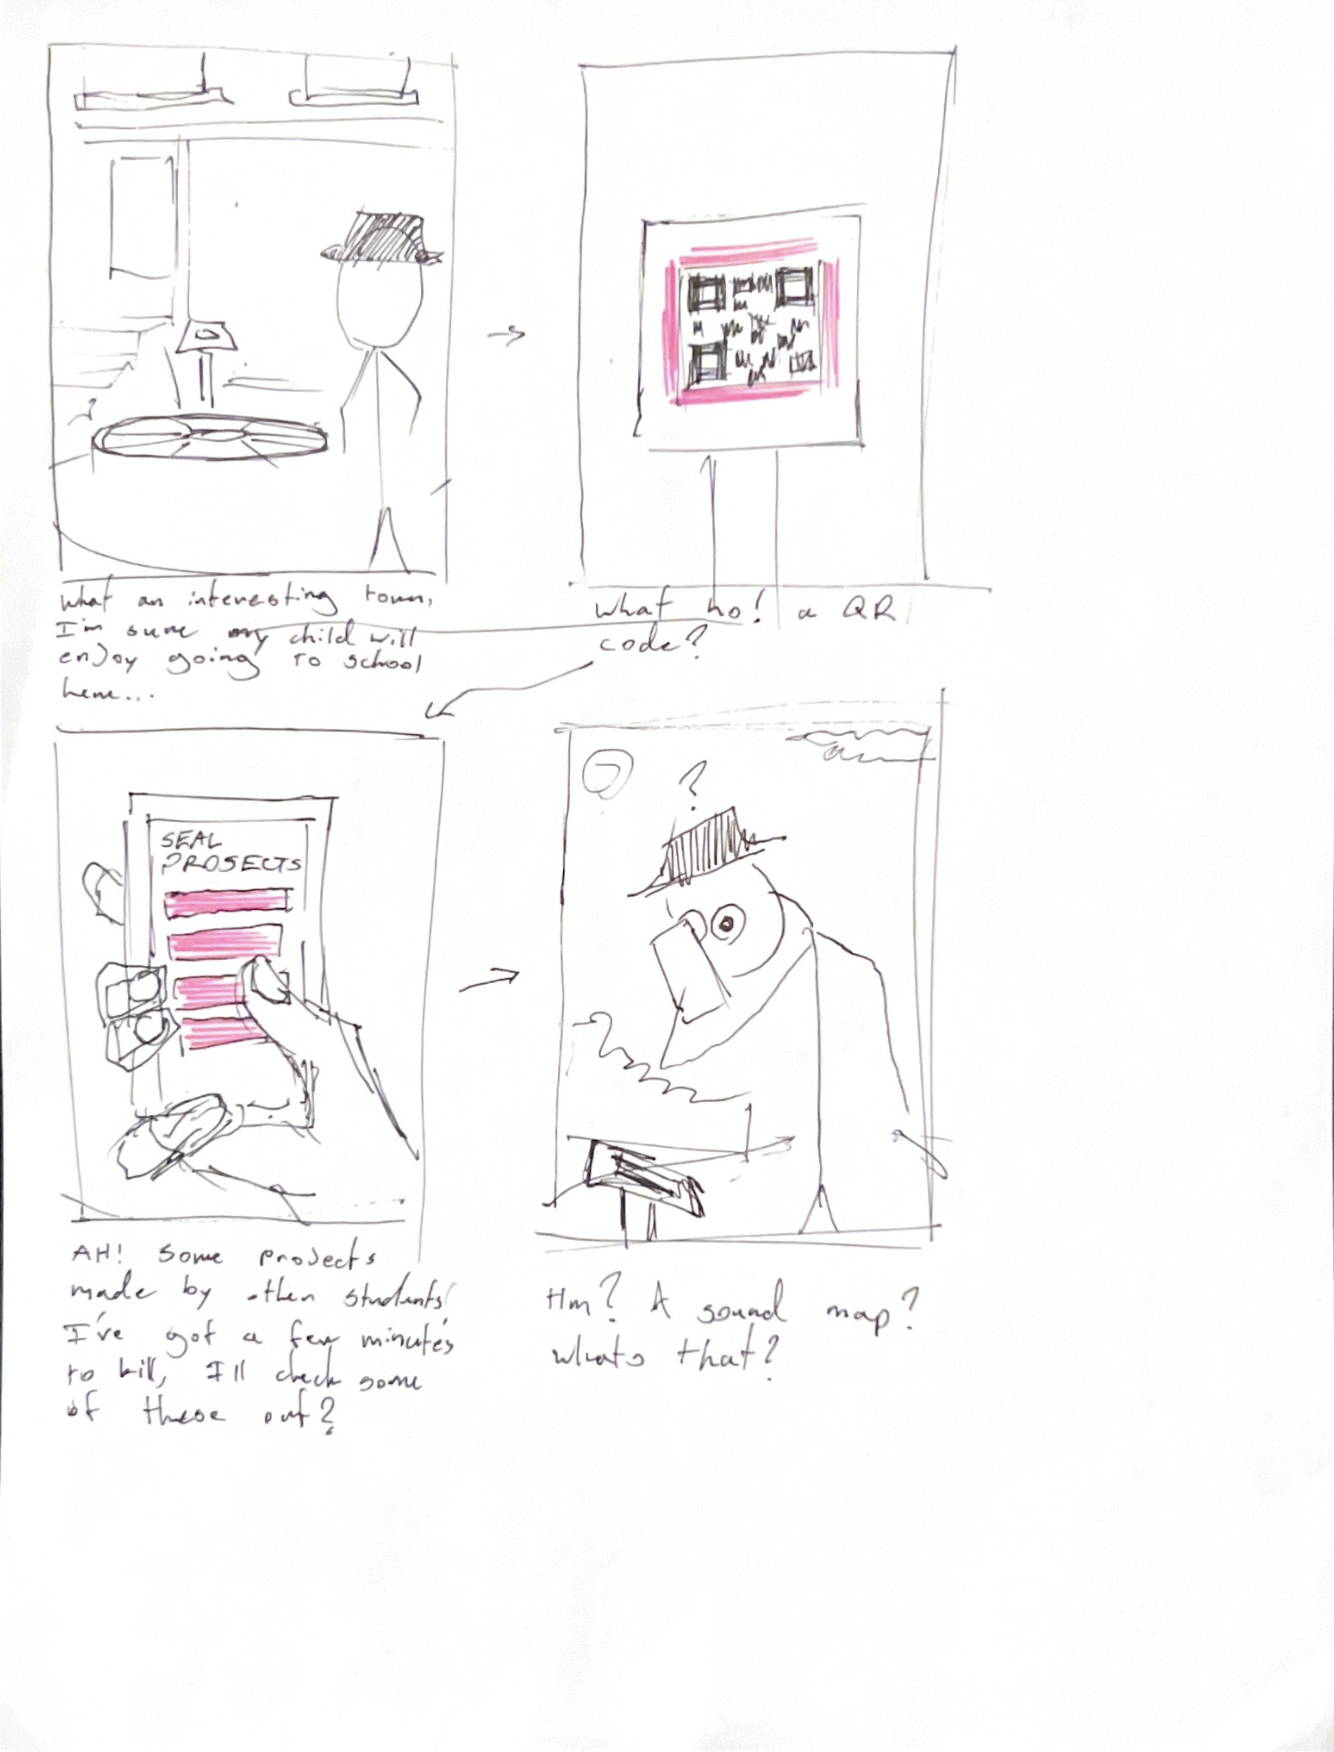 What an interesting town,
I'm sure my child will
enjoy going to school
here...
What ho! a QR
code?
SEAL
PROJECTS
AH! Some projects
made by other students!
I've got a few minutes
to kill, I'll check some
of these out?
?
Hm? A sound map?
whats that?